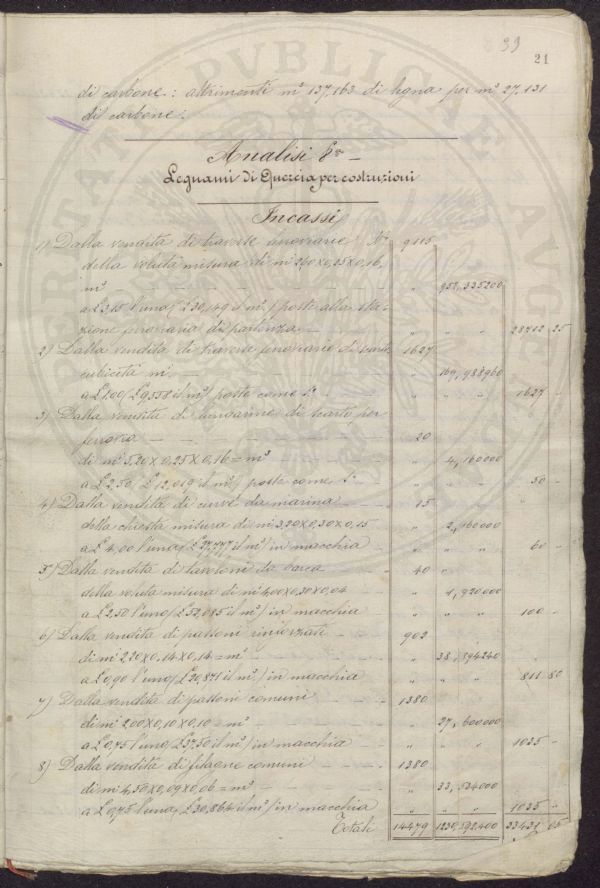 39
21
di carbone: altrimenti m³ 137,163 di legna per m³ 27,131
di carbone.
Analisi 8ª
Legnami di Quercia per costruzioni
Incassi
1) Dalla vendita di traverse ferroviarie N° 9115
della voluta misura di m¹ 2,60X0,25X0,16,
m³ " 951,335200
a L 3,15 l'uno / L 30,149 il m³/ poste alla sta-
zione ferroviaria di partenza " " " 28712 25
2) Dalla vendita di traverse ferroviarie di 1627
cubicità m³ 169,988960
a L 1,00 / L 9,558 il m³/ poste come 1° " " " 1627 "
3) Dalla vendita di di scarto per
ferrovia 20
di m¹ 5,20 X 0,25 X 0,16 = m³ " 4,160000
a L 2,50 / L 12,019 il m³/ poste come 1° " " " 50 "
4) Dalla vendita di curve da marina 15
della chiesta misura di m¹ 3,20X0,30X0,15 " 2,160000
a L 4,00 l'uno / L 27,777 il m³/ in macchia " " " 60 "
5) Dalla vendita di tavoloni da barca 40
della voluta misura di m¹ 4,00X0,30X0,04 " 1,920000
a L 2,50 l'uno / L 52,085 il m³/ in macchia " " " 100 "
6) Dalla vendita di passoni rinforzati 902
di m¹ 2,20X0,14X0,14 = m³ " 38,894240
a L 0,90 l'uno / L 20,871 il m³/ in macchia " " " 811 80
7) Dalla vendita di passoni comuni 1380
di m¹ 2,00X0,10X0,10 = m³ " 27,600000
a L 0,75 l'uno / L 37,50 il m³/ in macchia " " " 1035 "
8) Dalla vendita di filagne comuni 1380
di m¹ 4,50X0,09X0,06 = m³ " 33,534000
a L 0,75 l'uno / L 30,864 il m³/ in macchia " " " 1035 "
Totali 14479 1230,592,400 33431 05